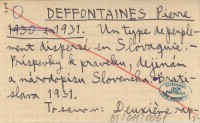 DEFFONTAINES Pierre
1930 en 1931. Un type de peuple-
ment dispersé en Slovaquie. -
Príspevky k praveku, dejinám
a národopisu Slovenska, Brati-
slava 1931.
Tr. s. un: Deuxième rap-